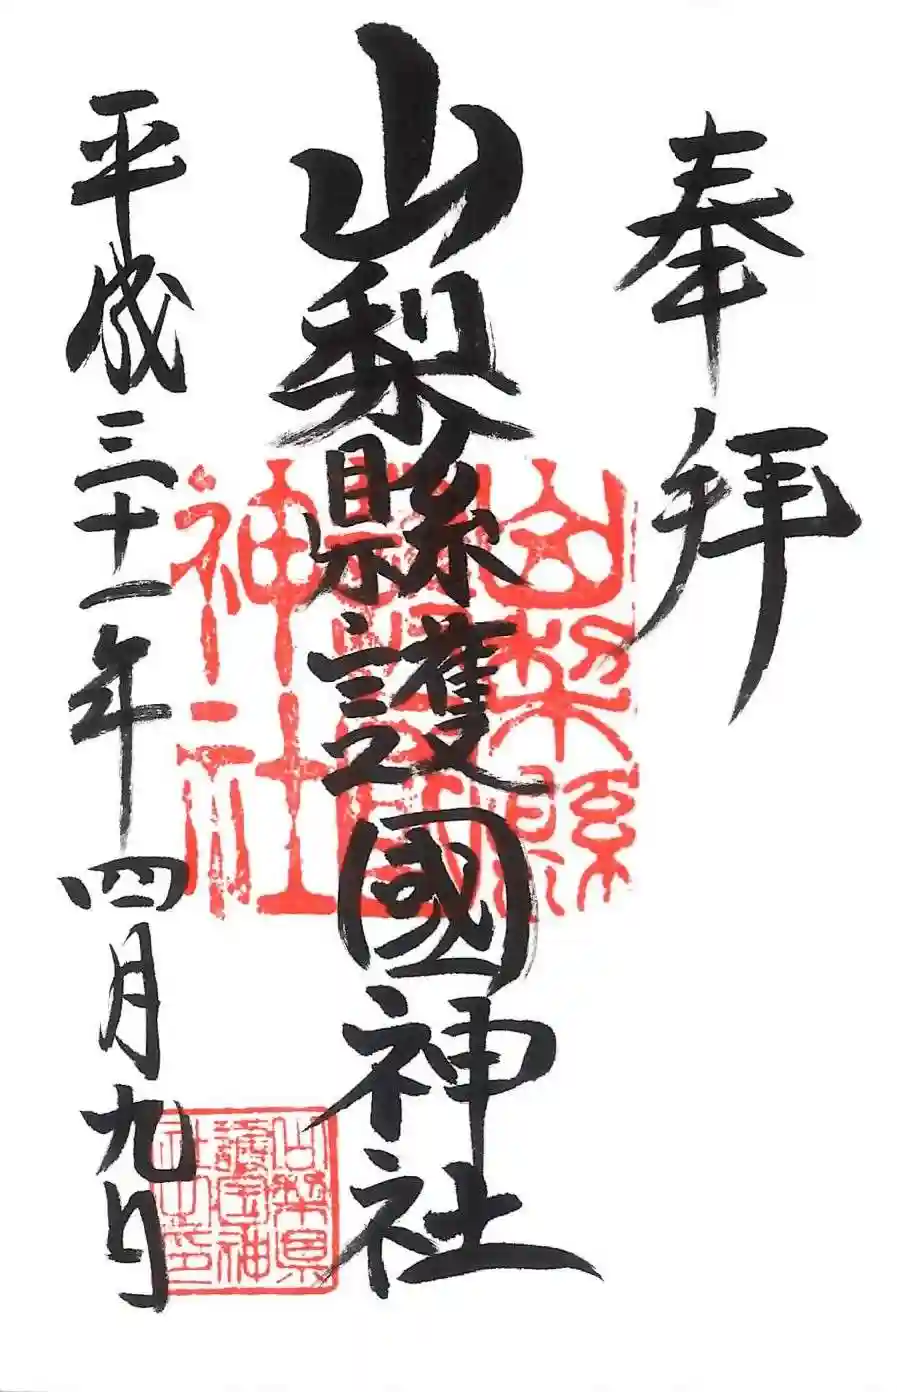 奉拝
山梨縣護國神社
山梨縣護國神社
平成三十一年四月九日
山梨県護国神社之印